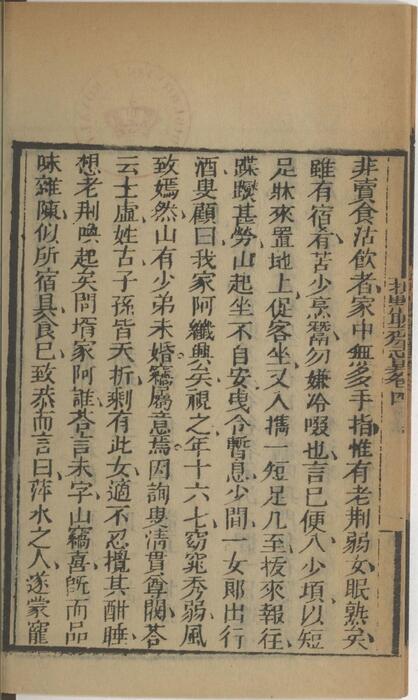 非賣食沽飲者家中無多手指惟有老荆弱女眠熟矣
雖有宿肴苦少烹鬵勿嫌冷啜也言已便入少頃以短
足牀來置地上促客坐又入攜一短足几至拔來報往
蹀躞甚勞山起坐不自安曳令暫息少間一女郎出行
酒叟顧曰我家阿纖興矣視之年十六七窈窕秀弱風
致嫣然山有少弟未婚竊屬意焉因詢叟清貫尊閥荅
云士虛姓古子孫皆夭折剩有此女適不忍攪其酣睡
想老荆喚起矣問壻家阿誰荅言未字山竊喜旣而品
味雜陳似所宿具食已致恭而言曰萍水之人遂蒙寵